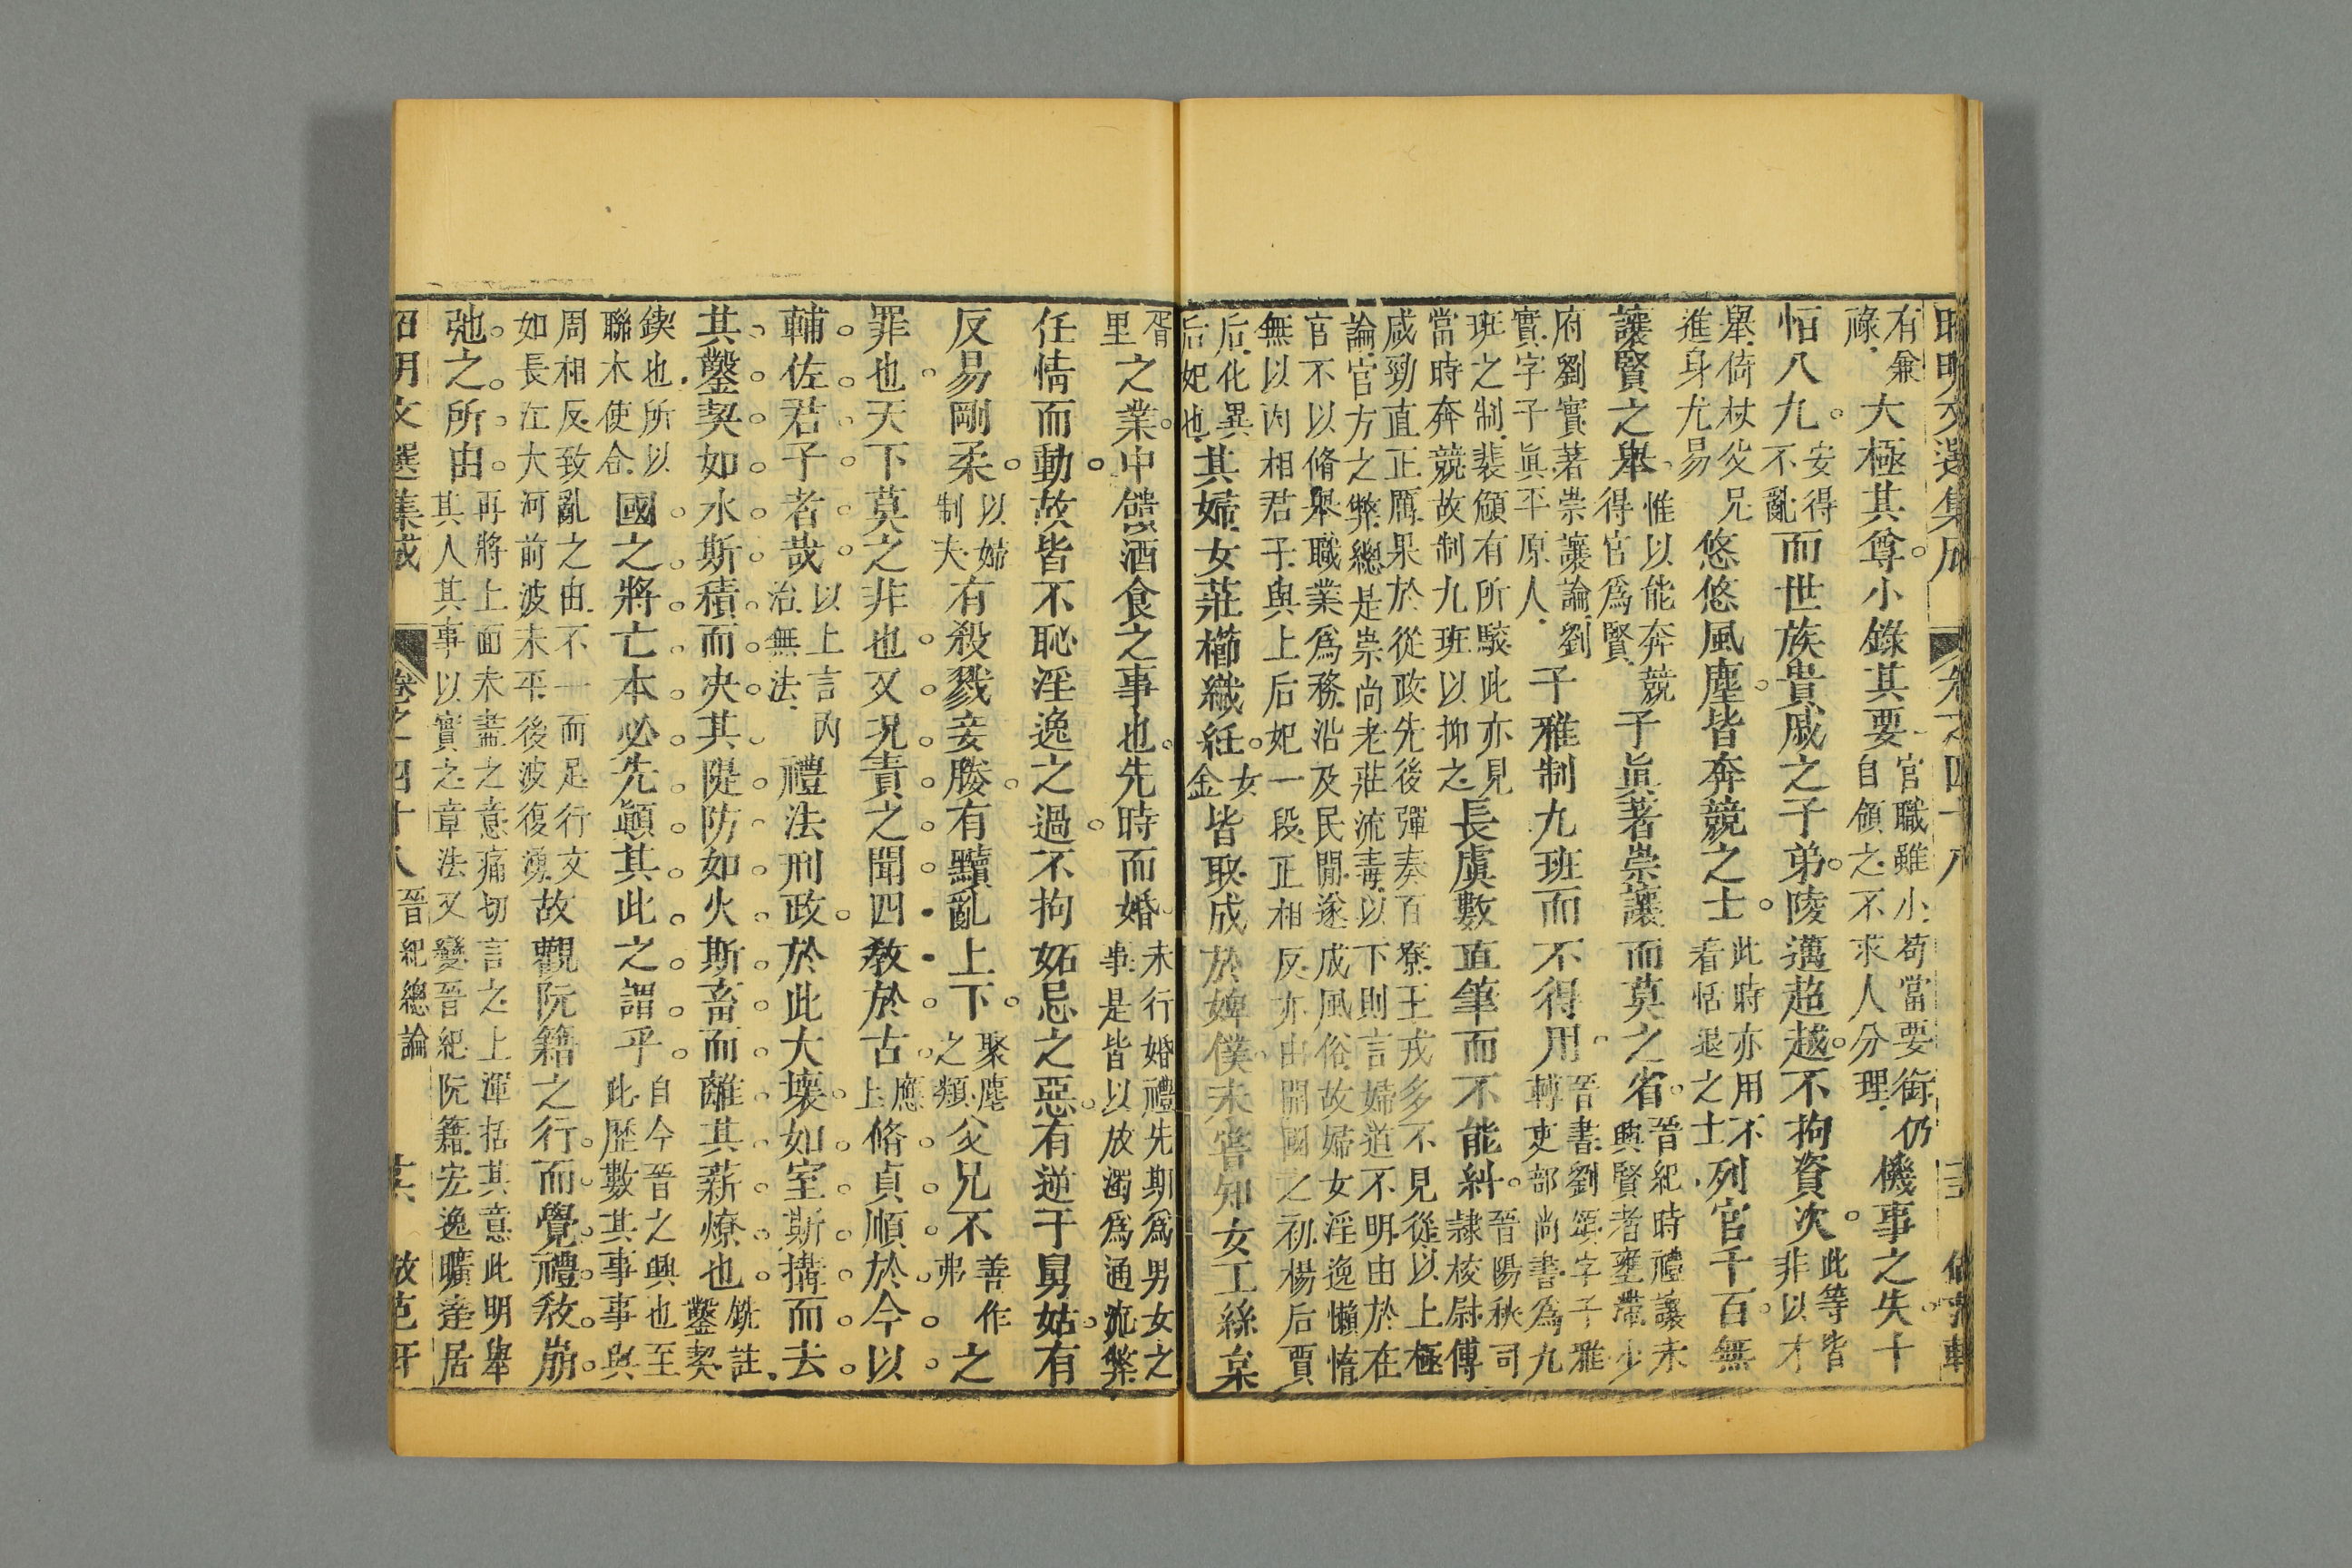 昭明文選集成　卷之四十八　三　倣范軒
有兼
祿
大極其尊小錄其要
官職雖小苟當要衝仍
自領之不求人分理
機事之失十
恒八九
安得
不亂
而世族貴戚之子弟陵邁超越不拘資次
此等皆
非以才
舉倚杖父兄
進身尤易
悠悠風塵皆奔競之士
此時亦用不
看恬退之士
列官千百無
讓賢之舉
惟以能奔競
得官爲賢
子眞著崇讓而莫之省
晉紀時禮讓未
興賢者壅滯少
府劉寔著崇讓論劉
寔字子眞平原人
子雅制九班而不得用
晉書劉頌字子雅
轉吏部尚書爲九
班之制裴頠有所駁此亦見
當時奔競故制九班以抑之
長虞數直筆而不能糾
晉陽秋司
隸校尉傅
咸勁直正厲果於從政先後彈奏百寮王戎多不見從以上極
論官方之弊總是崇尚老莊流毒以下則言婦道不明由於在
官不以脩舉職業爲務沿及民間遂成風俗故婦女淫逸懶惰
無以內相君子與上后妃一段正相反亦由開國之初楊后賈
后化異
后妃也
其婦女莊櫛織紝
女
金
皆取成於婢僕未嘗知女工絲枲
胥
里
之業中饋酒食之事也先時而婚
未行婚禮先期爲男女之
事是皆以放濁爲通流弊
任情而動故皆不恥淫逸之過不拘妬忌之惡有逆于舅姑有
反易剛柔
以婦
制夫
有殺戮妾媵有黷亂上下
聚麀
之類
父兄不
善作
弗
之
罪也天下莫之非也又况責之聞四敎於古
應
上
脩貞順於今以
輔佐君子者哉
以上言內
治無法
禮法刑政於此大壞如室斯搆而去
其鑿契如水斯積而决其隄防如火斯畜而離其薪燎也
銑註
鑿契
鍥也所以
聯木使合
國之將亡本必先顚其此之謂乎
自今晉之興也至
此歷數其事事與
周相反致亂之由不一而足行文
如長江大河前波未平後波復湧
故觀阮籍之行而覺禮敎崩
弛之所由
再將上面未盡之意痛切言之上渾括其意此明舉
其人其事以實之章法又變晉紀阮籍宏逸曠達居
昭明文選集成　卷之四十八　晉紀總論　倣范軒